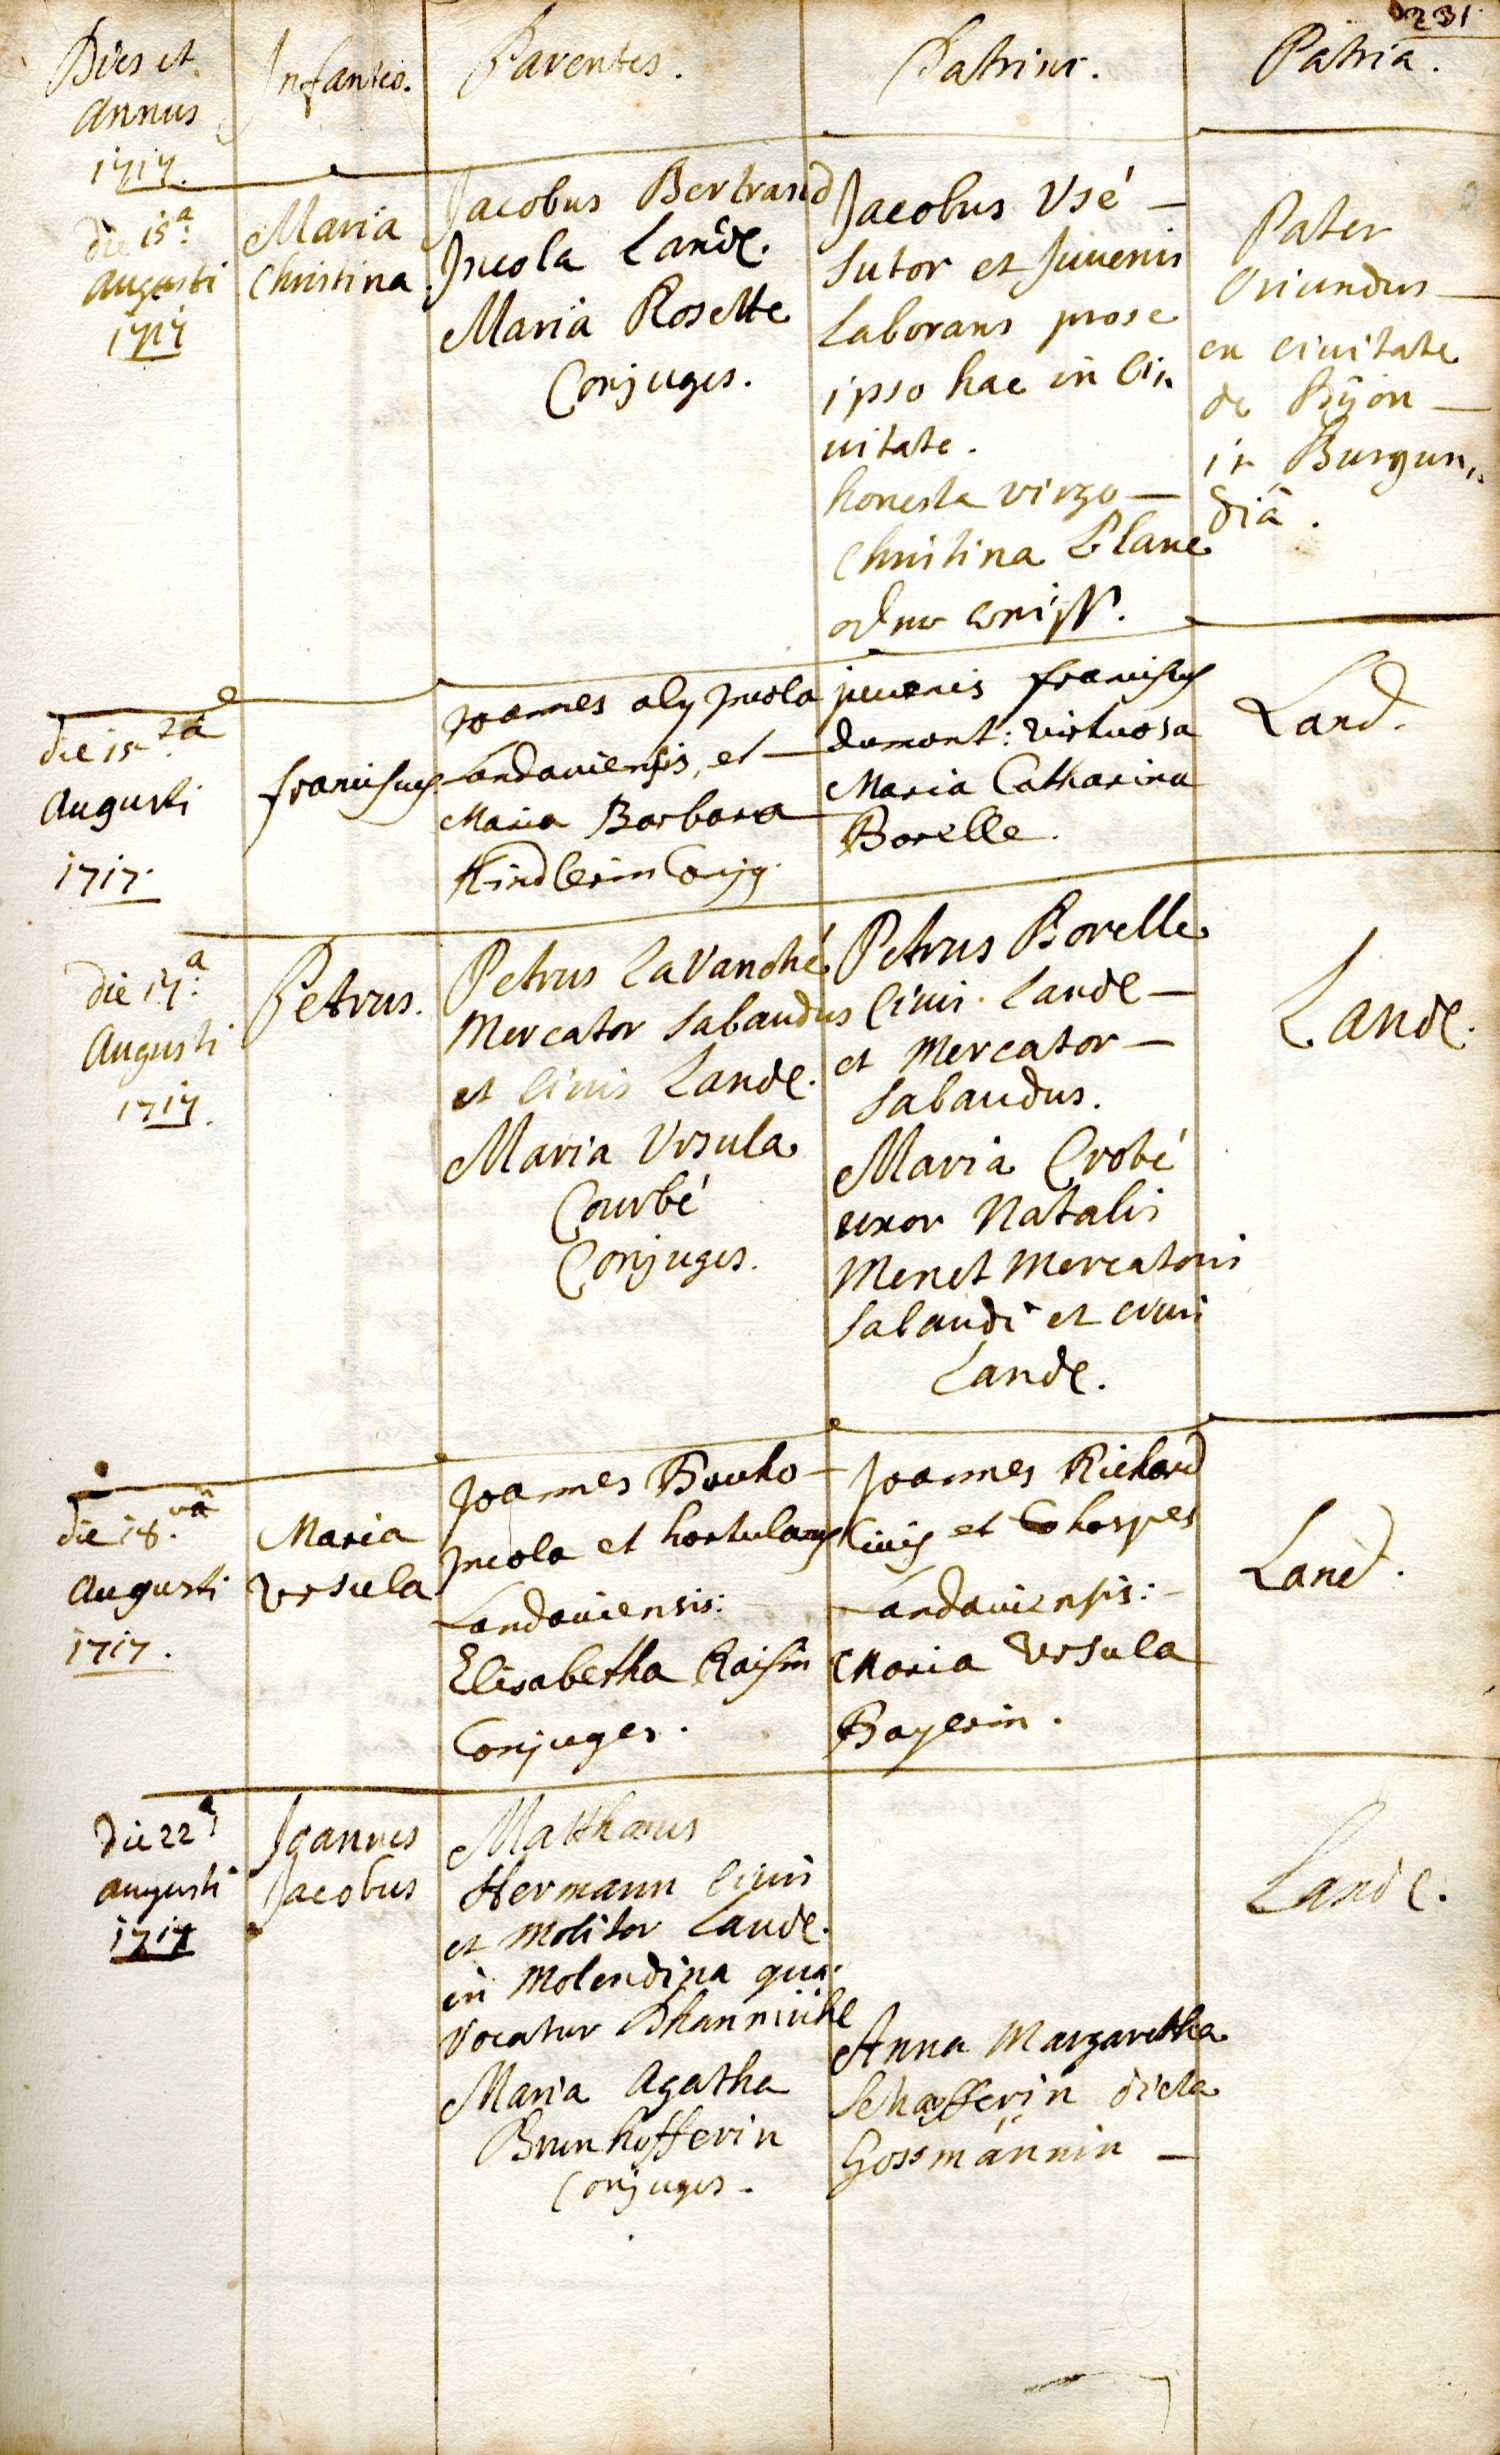 231
Dies et
annus
1717.
Infantes.
Parentes.
Patrini.
Patria.
die 15a:
augusti
1717
Maria
Christina.
Jacobus Bertrand
Incola Lande.
Maria Rosette
Conjuges.
Jacobus Usé —
Sutor et Juvenis
Laborans pro se
ipso hac in Ci,,
uitate.
honesta virgo —
Christina Blane
Pater
Oriundus —
ex ciuitate
de Dijon —
in Burgun,,
diâ.
die 15ta
Augusti
1717.
franciscus
Joannes aly Incola
Landauiensis, et —
Maria Barbara
Kindlerin Conjg.
juvenis franciscus
dumont: virtuosa
Maria Catharina
Borelle.
Land.
die 17a:
Augusti
1717.
Petrus.
Petrus LaVanché
Mercator Sabaudus
et Ciuis Lande.
Maria Ursula
Courbé
Conjuges.
Petrus Borelle
Ciuis Lande —
et Mercator —
Sabaudus.
Maria Crobé
uxor Natalis
Menet Mercatoris
Sabaudi et ciuis
Lande.
Lande.
die 18.va
Augusti
1717.
Maria
Ursula
Joannes Bouho —
Incola et hortulanus
Landauiensis:
Elisabetha Raisin
Conjuges.
Joannes Richard
Ciuis et hospes
Landauiensis: —
Maria Ursula
Bayerin.
Land.
Die 22a
augusti
1717
Joannes
Jacobus
Matthaeus
Hermann Ciuis
et Molitor Lande.
in Molendina quae
vocatur
Maria Agatha
Brunhofferin
Conjuges.
Anna Margaretha
Schæfferin dicta
Gossmännin —
Lande.